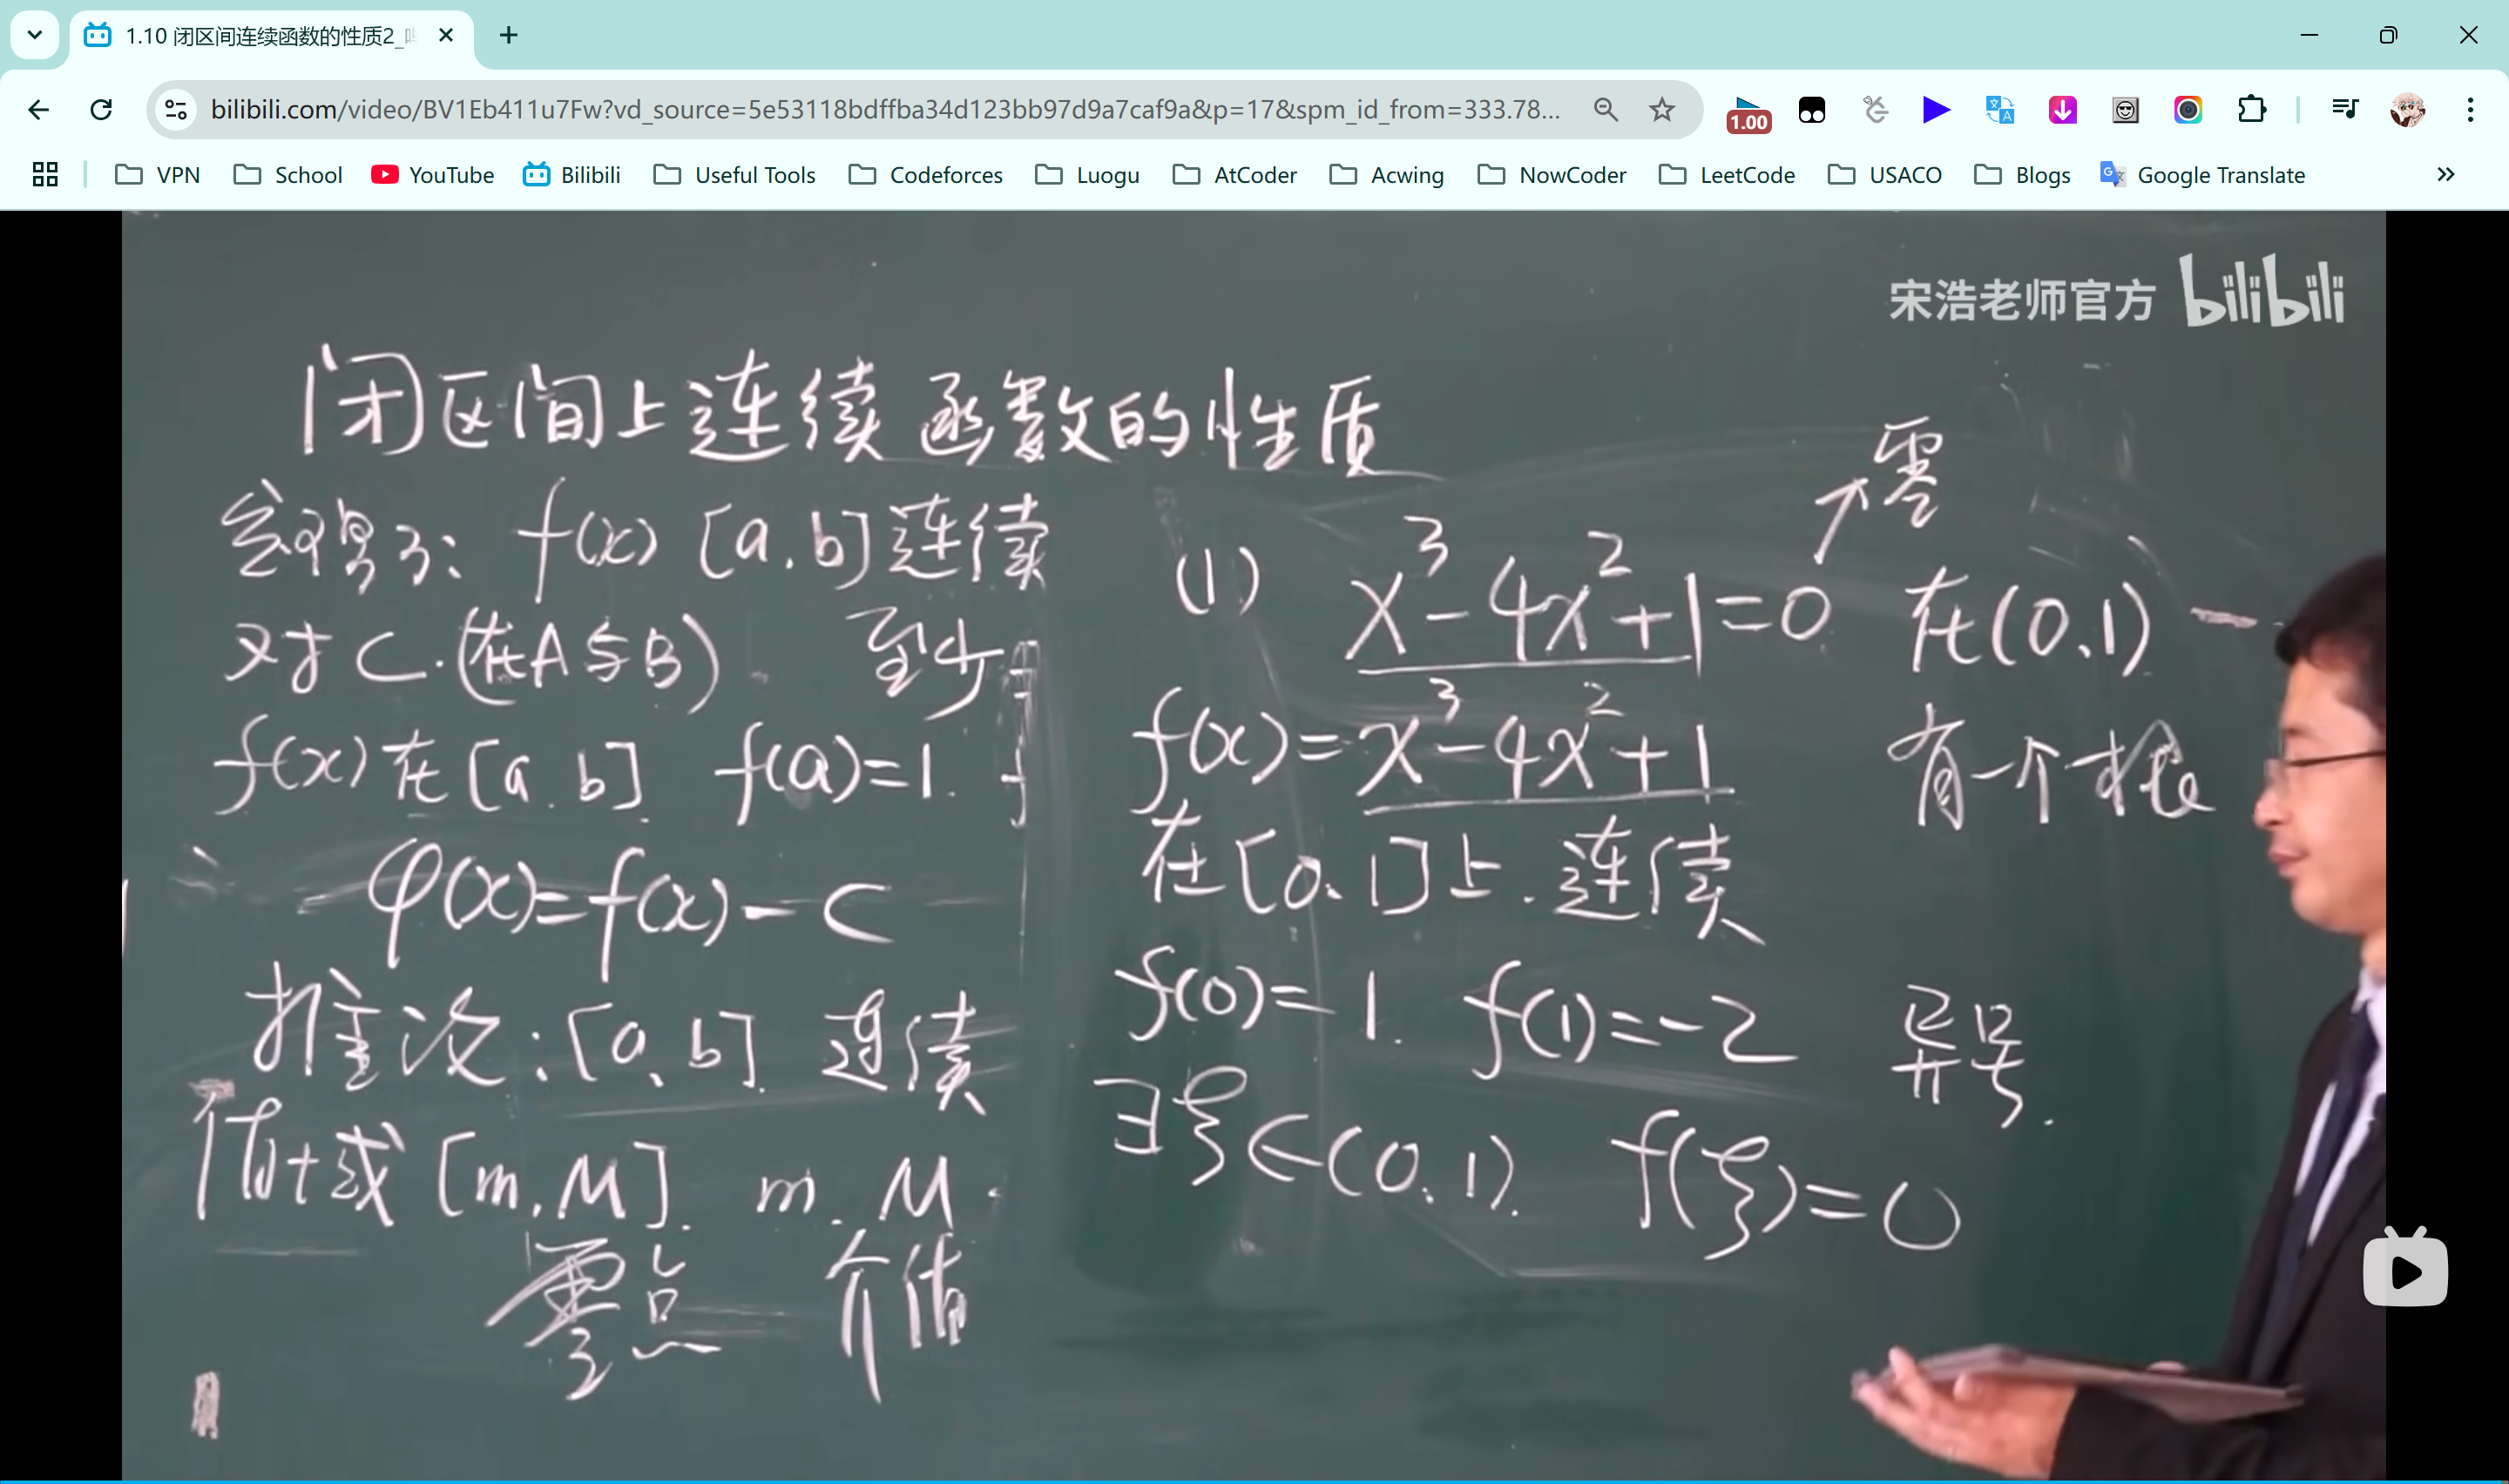 1.10 闭区间连续函数的性质2_
bilibili.com/video/BV1Eb411u7Fw?vd_source=5e53118bdffba34d123bb97d9a7caf9a&p=17&spm_id_from=333.78...
1.00
VPN School YouTube Bilibili Useful Tools Codeforces Luogu AtCoder Acwing NowCoder LeetCode USACO Blogs Google Translate
宋浩老师官方 bilibili
闭区间上连续函数的性质
f(x) [a,b]连续
对C.(在A与B) 至少
f(x)在[a.b] f(a)=1.
φ(x)=f(x)-C
推论:[a,b] 连续
值域[m,M]. m.M.
零点 介值
零
(1) x³-4x²+1=0 在(0,1)
有一个根
f(x)=x³-4x²+1
在[0,1]上.连续
f(0)=1. f(1)=-2 异号.
∃ξ∈(0,1). f(ξ)=0